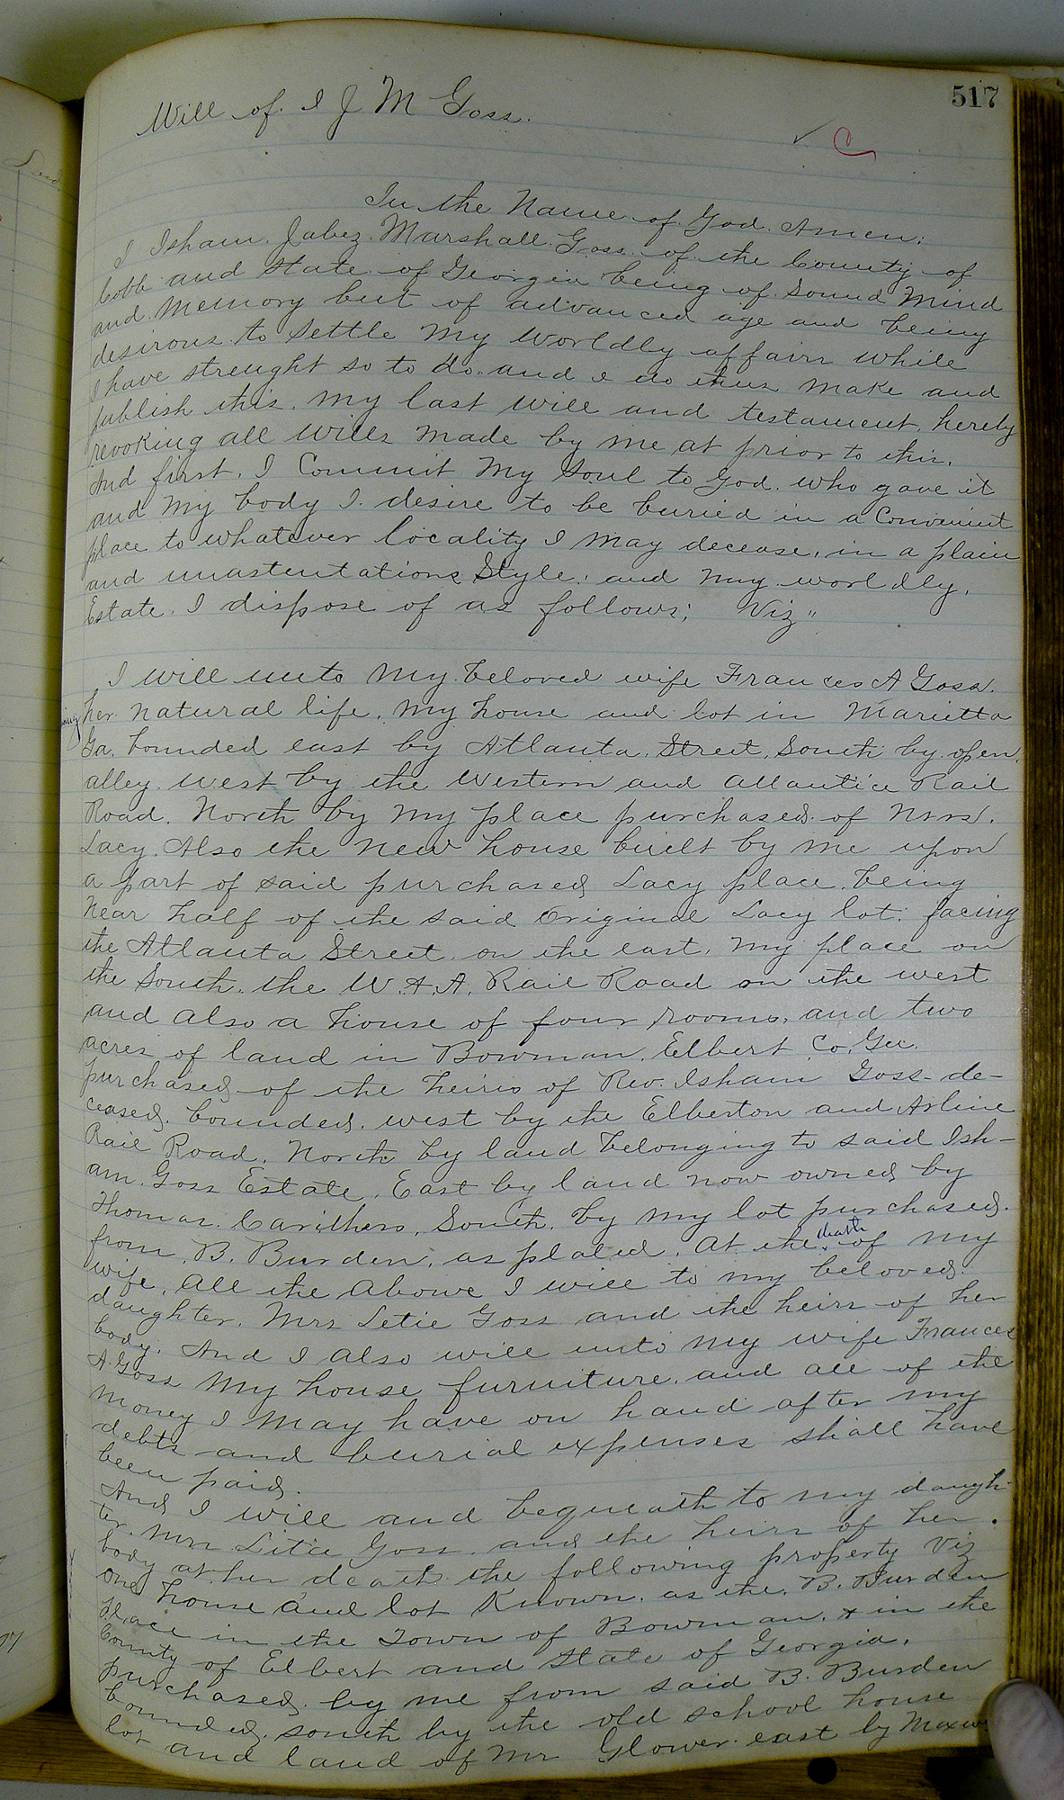 517
Will of I J M Goss.
In the Name of God. Amen:
I Isham Jabez Marshall Goss of the County of
Cobb and State of Georgia being of Sound Mind
and Memory but of advanced age and being
desirous to Settle My Worldly affairs while
I have strenght so to do. and I do thus make and
publish this, My last will and testament, hereby
revoking all wills made by me at prior to this.
And first, I Commit My Soul to God who gave it
and My body I desire to be buried in a Convenient
place to whatever locality I May decease, in a plain
and unastentations Style: and my worldly
Estate I dispose of as follows; Viz"
I will unto My beloved wife Frances A Goss.
her natural life, My house and lot in Marietta
Ga, bounded east by Atlanta Street, South by open
alley West by the Western and Atlantic Rail
Road. North by My place purchased of Mrs.
Lacy. Also the New house built by me upon
a part of said purchased Lacy place. being
Near half of the said Original Lacy lot. facing
the Atlanta Street on the east, My place on
the South. the W. & A. Rail Road on the west
and also a house of four rooms, and two
acres of land in Bowman, Elbert Co. Geo.
purchased of the heirs of Rev. Isham Goss de-
ceased, bounded. west by the Elberton and Airline
Rail Road, North by land belonging to said Ish-
am Goss Estate, East by land now owned by
Thomas Carithers, South. by My lot purchased.
from B. Burden, as plated. At the death of my
wife, All the Above I will to my beloved.
daughter, Mrs Letie Goss and the heirs of her
body. And I also will unto My wife Frances
A Goss My house furniture. and all of the
Money I May have on hand after my
debts and burial expenses shall have
been paid.
And I will and bequeath to my daugh-
ter Mrs Litie Goss and the heirs of her
body at her death the following property Viz
One house and lot Known as the B. Burden
place in the Town of Bowman, & in the
County of Elbert and State of Georgia,
purchased by me from said B. Burden
bounded, south by the old school house
lot and land of Mr Glower east by